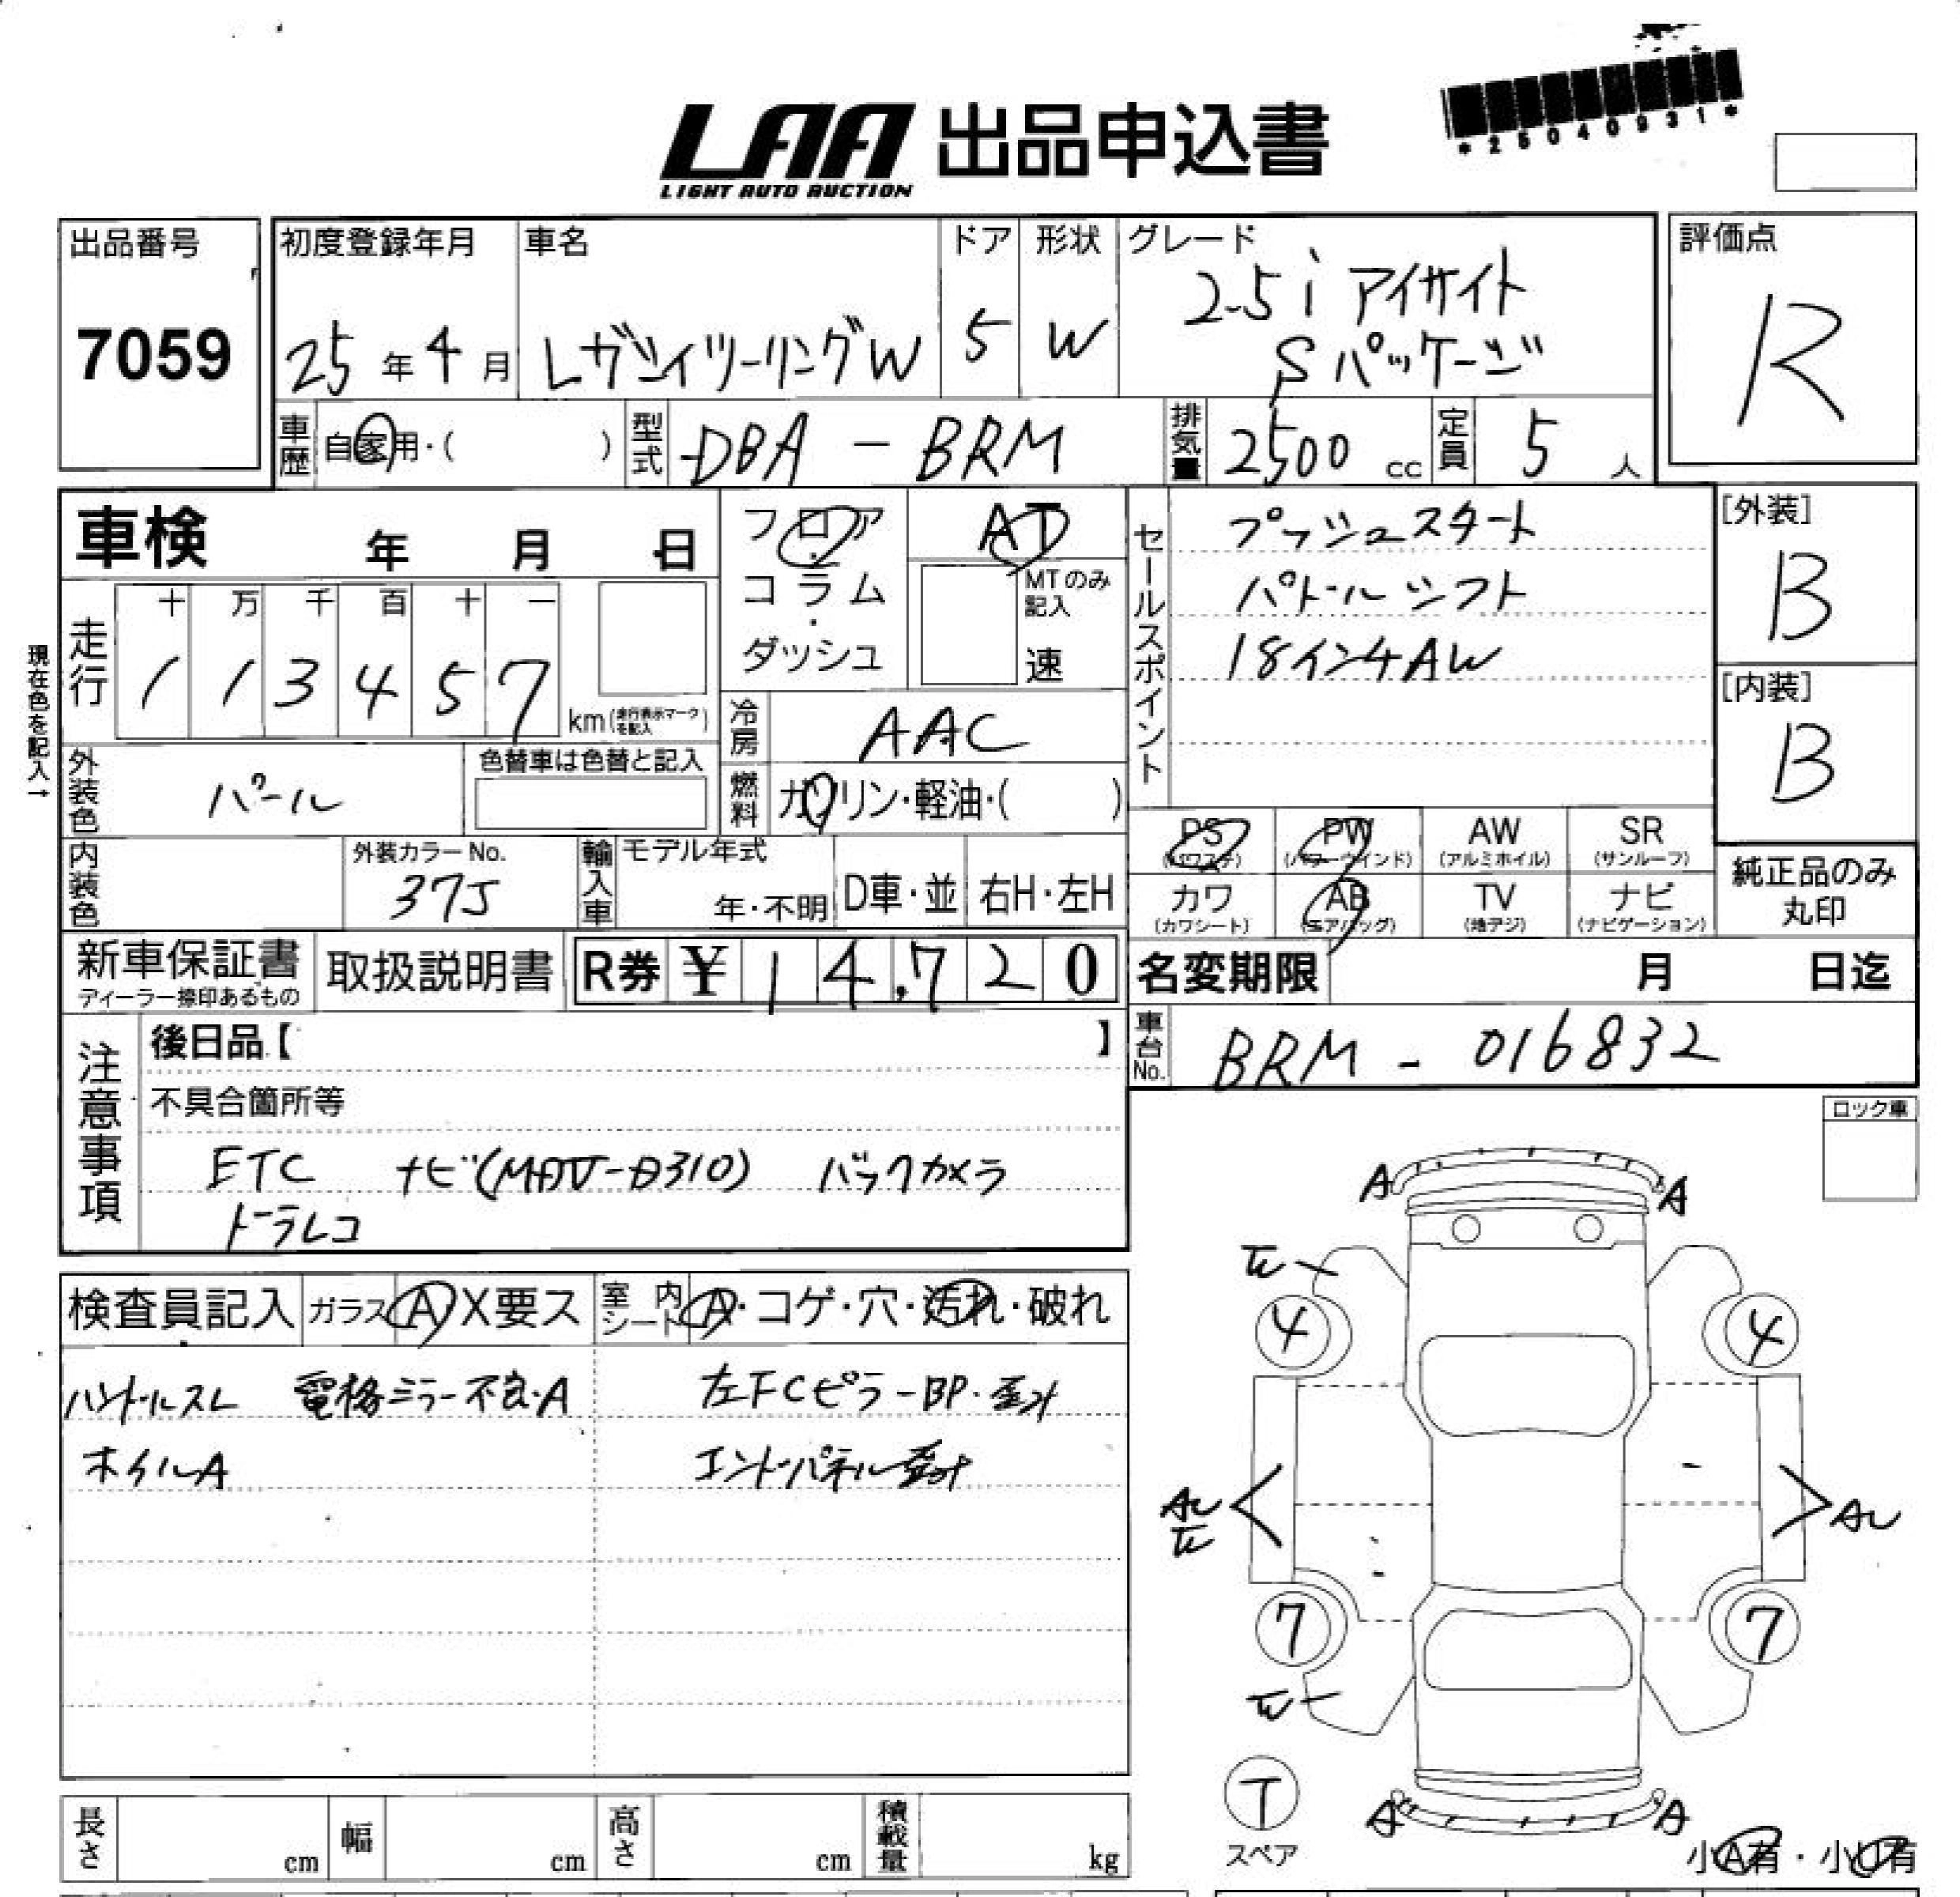 LAA 出品申込書
LIGHT AUTO AUCTION
*25040931*
出品番号
7059
初度登録年月
25年4月
車名
レガシィツーリングW
ドア
5
形状
W
グレード
2.5i アイサイト
Sパッケージ
評価点
R
車歴
自家用・( )
型式
DBA - BRM
排気量
2500 cc
定員
5 人
車検 年 月 日
フロア
・
コラム
・
ダッシュ
AT
MTのみ
記入
速
セールスポイント
プッシュスタート
パドルシフト
18インチAW
[外装]
B
[内装]
B
現在色を記入→
走行
十 万 千 百 十 一
1 1 3 4 5 7
km(走行表示マークを記入)
冷房
AAC
外装色
パール
色替車は色替と記入
燃料
ガソリン・軽油・( )
PS
(パワステ)
PW
(パワーウインド)
AW
(アルミホイル)
SR
(サンルーフ)
内装色
外装カラーNo.
37J
輸入車
モデル年式
年・不明
D車・並
右H・左H
カワ
(カワシート)
AB
(エアバッグ)
TV
(地デジ)
ナビ
(ナビゲーション)
純正品のみ
丸印
新車保証書
ディーラー捺印あるもの
取扱説明書
R券 ¥ 14,720
名変期限 月 日迄
車台No.
BRM - 016832
注意事項
後日品【 】
不具合箇所等
ETC ナビ(MDV-D310) バックカメラ
ドラレコ
ロック車
検査員記入
ガラス A X要ス
室内シート A・コゲ・穴・汚れ・破れ
ハンドルスレ 電格ミラー不良・A
左FCピラーBP・歪み
ホイルA
エンドパネル歪み
A A
4 4
7 7
T
スペア
A A
小A有・小U有
長さ cm
幅 cm
高さ cm
積載量 kg